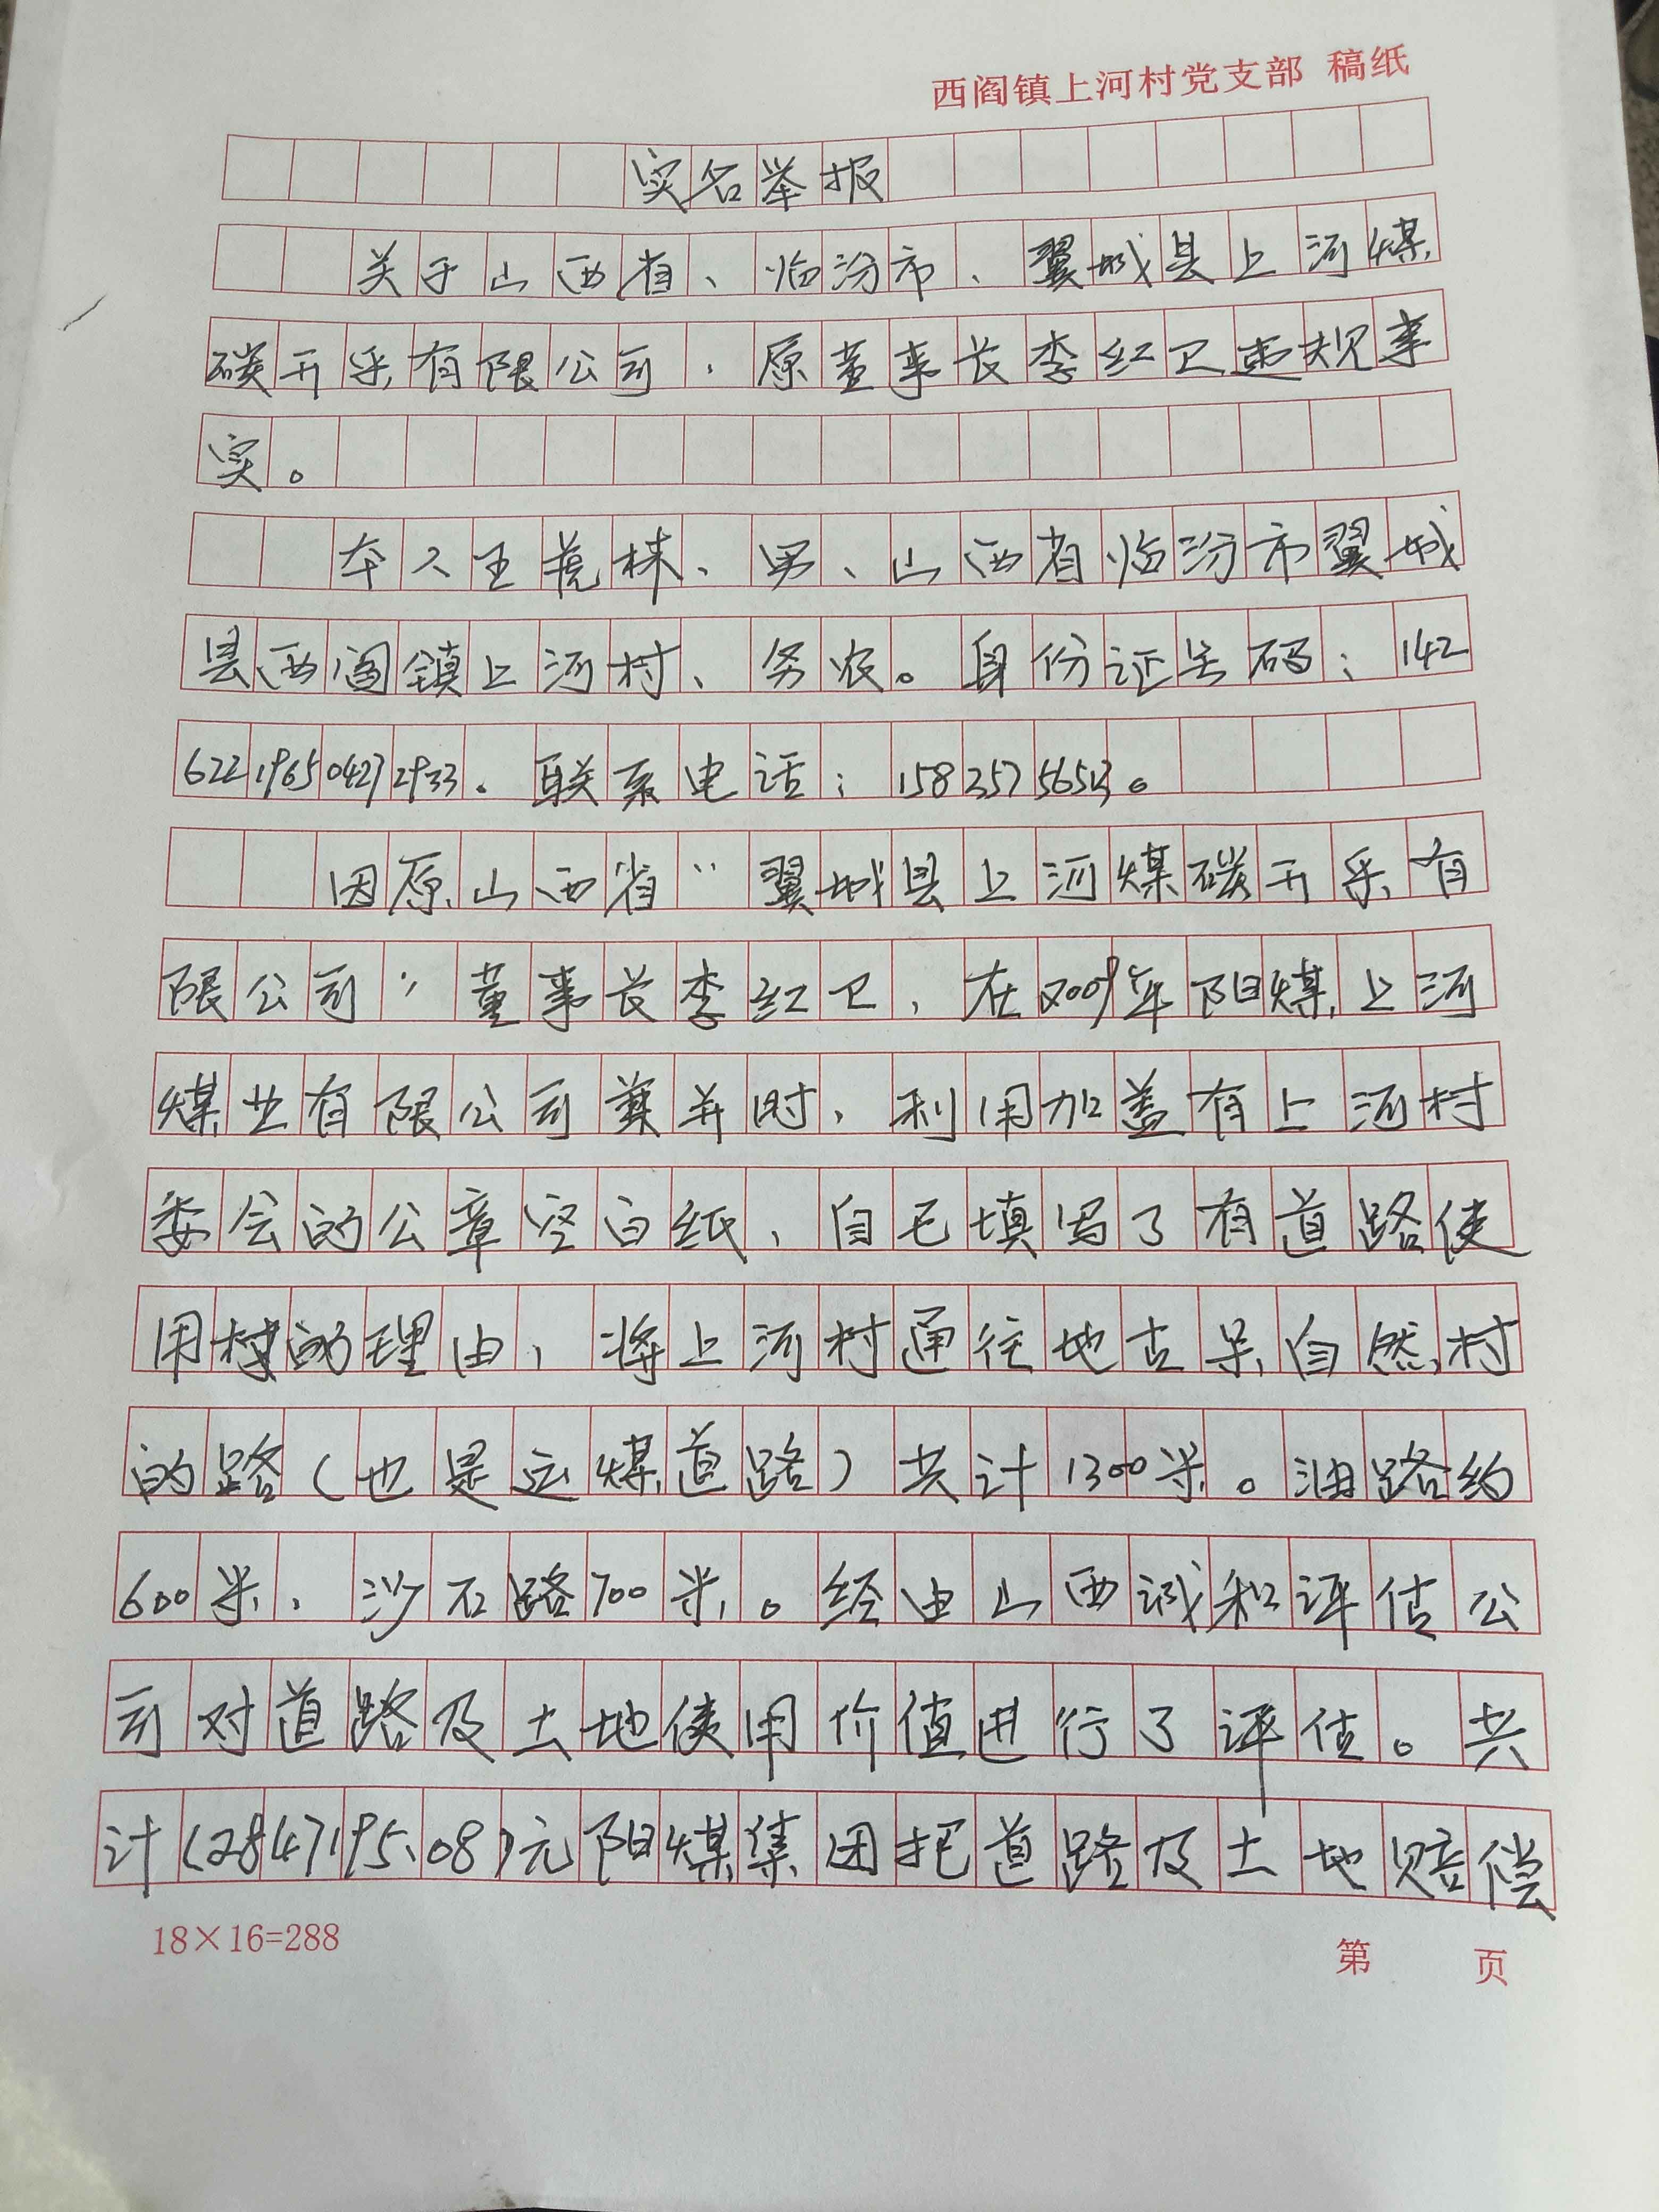 西阎镇上河村党支部 稿纸
实名举报
关于山西省、临汾市、翼城县上河煤
碳开采有限公司，原董事长李红卫违规事
实。
本人王 栋、男、山西省临汾市翼城
县西阎镇上河村、务农。身份证号码：142
622196504272933. 联系电话：158357565。
因原山西省“翼城县上河煤碳开采有
限公司”董事长李红卫，在2009年阳煤上河
煤业有限公司兼并时，利用加盖有上河村
委会的公章空白纸，自已填写了有道路使
用 的理由，将上河村通往地古呆自然村
的路（也是运煤道路）共计1300米。油路约
600米，沙石路700米。经由山西诚和评估公
司对道路及土地使用价值进行了评估。共
计（2847195.08）元阳煤集团把道路及土地赔偿
18×16=288
第 页